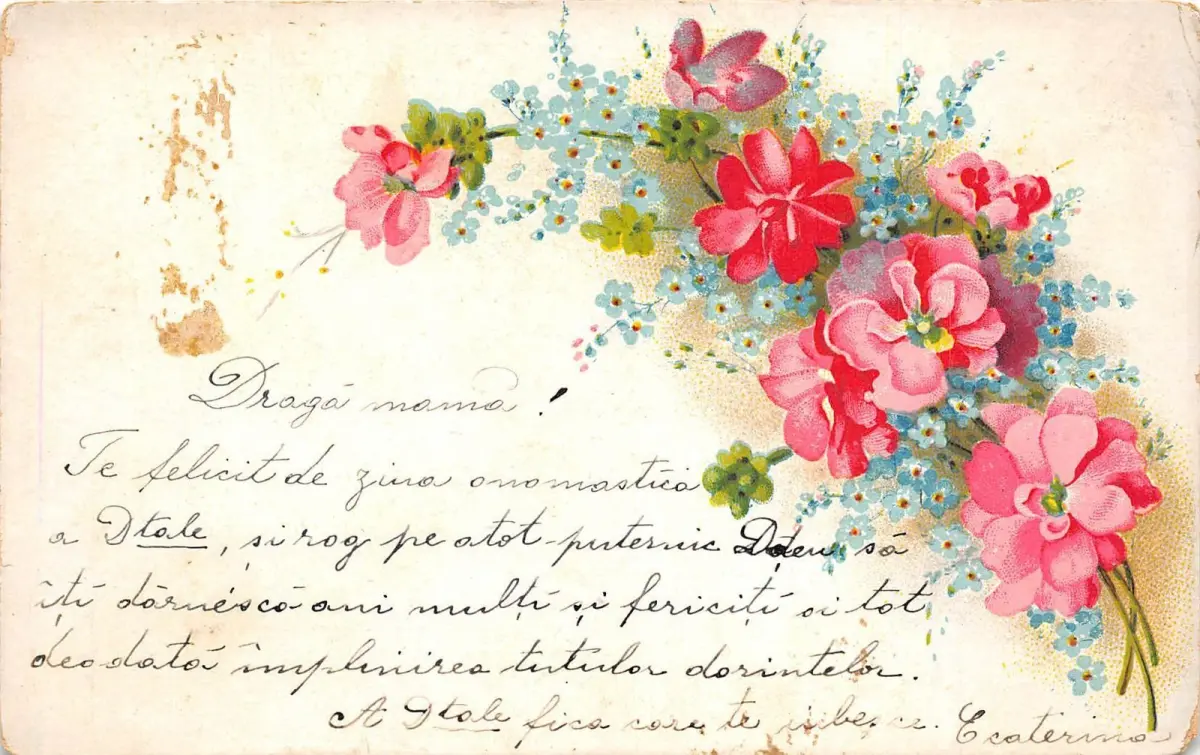 Dragă mama!
Te felicit de ziua onomastica
a Dtale, și rog pe atot-puternic Dzeu să
îți dăruéscă ani mulți și fericiți si tot
deodată împlinirea tutulor dorintelor.
A Dtale fica care te iubesce. Ecaterina